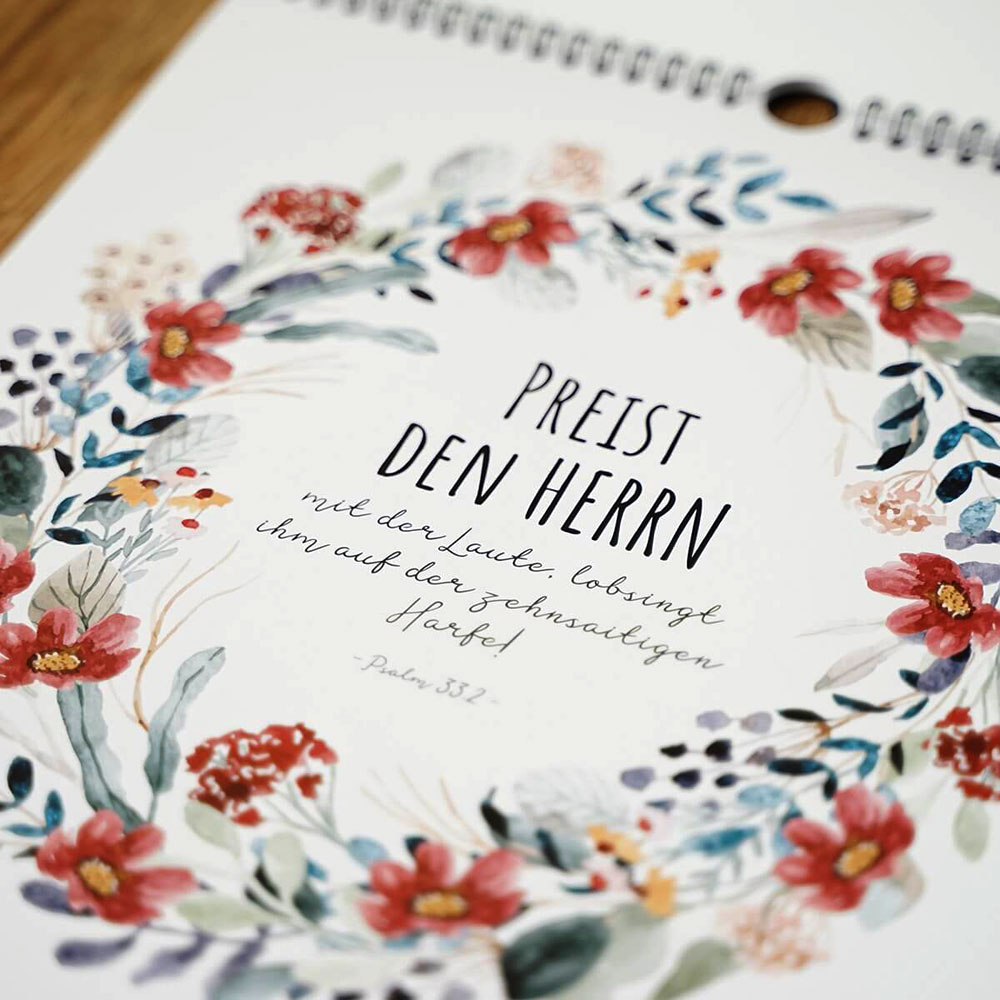 PREIST
DEN HERRN
mit der Laute, lobsingt
ihm auf der zehnsaitigen
Harfe!
-Psalm 33.2-